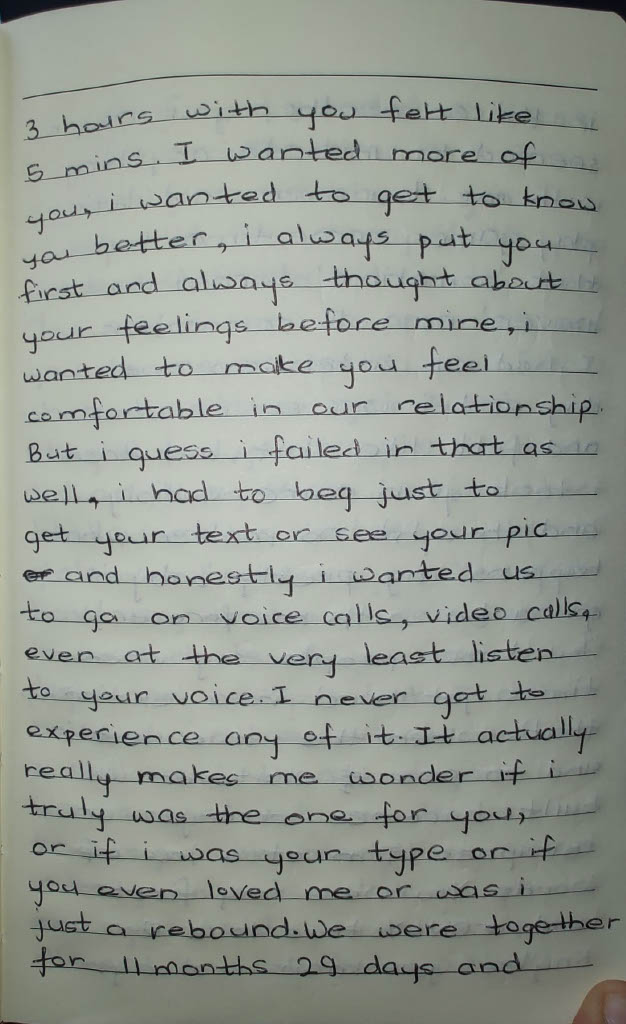 3 hours with you felt like
5 mins. I wanted more of
you, i wanted to get to know
you better, i always put you
first and always thought about
your feelings before mine, i
wanted to make you feel
comfortable in our relationship.
But i guess i failed in that as
well, i had to beg just to
get your text or see your pic
or and honestly i wanted us
to go on voice calls, video calls,
even at the very least listen
to your voice. I never got to
experience any of it. It actually
really makes me wonder if i
truly was the one for you,
or if i was your type or if
you even loved me or was i
just a rebound. We were together
for 11 months 29 days and